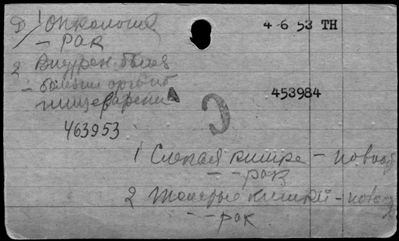 Д/ 1 Онкология
4-6 53 TH
— рак
2 Внутрен. болез
— болезни органов
пищеварени
453984
463953
С
1 Слепая кишка — новооб
— — рак
2 Толстые кишки — новооб
— — рак